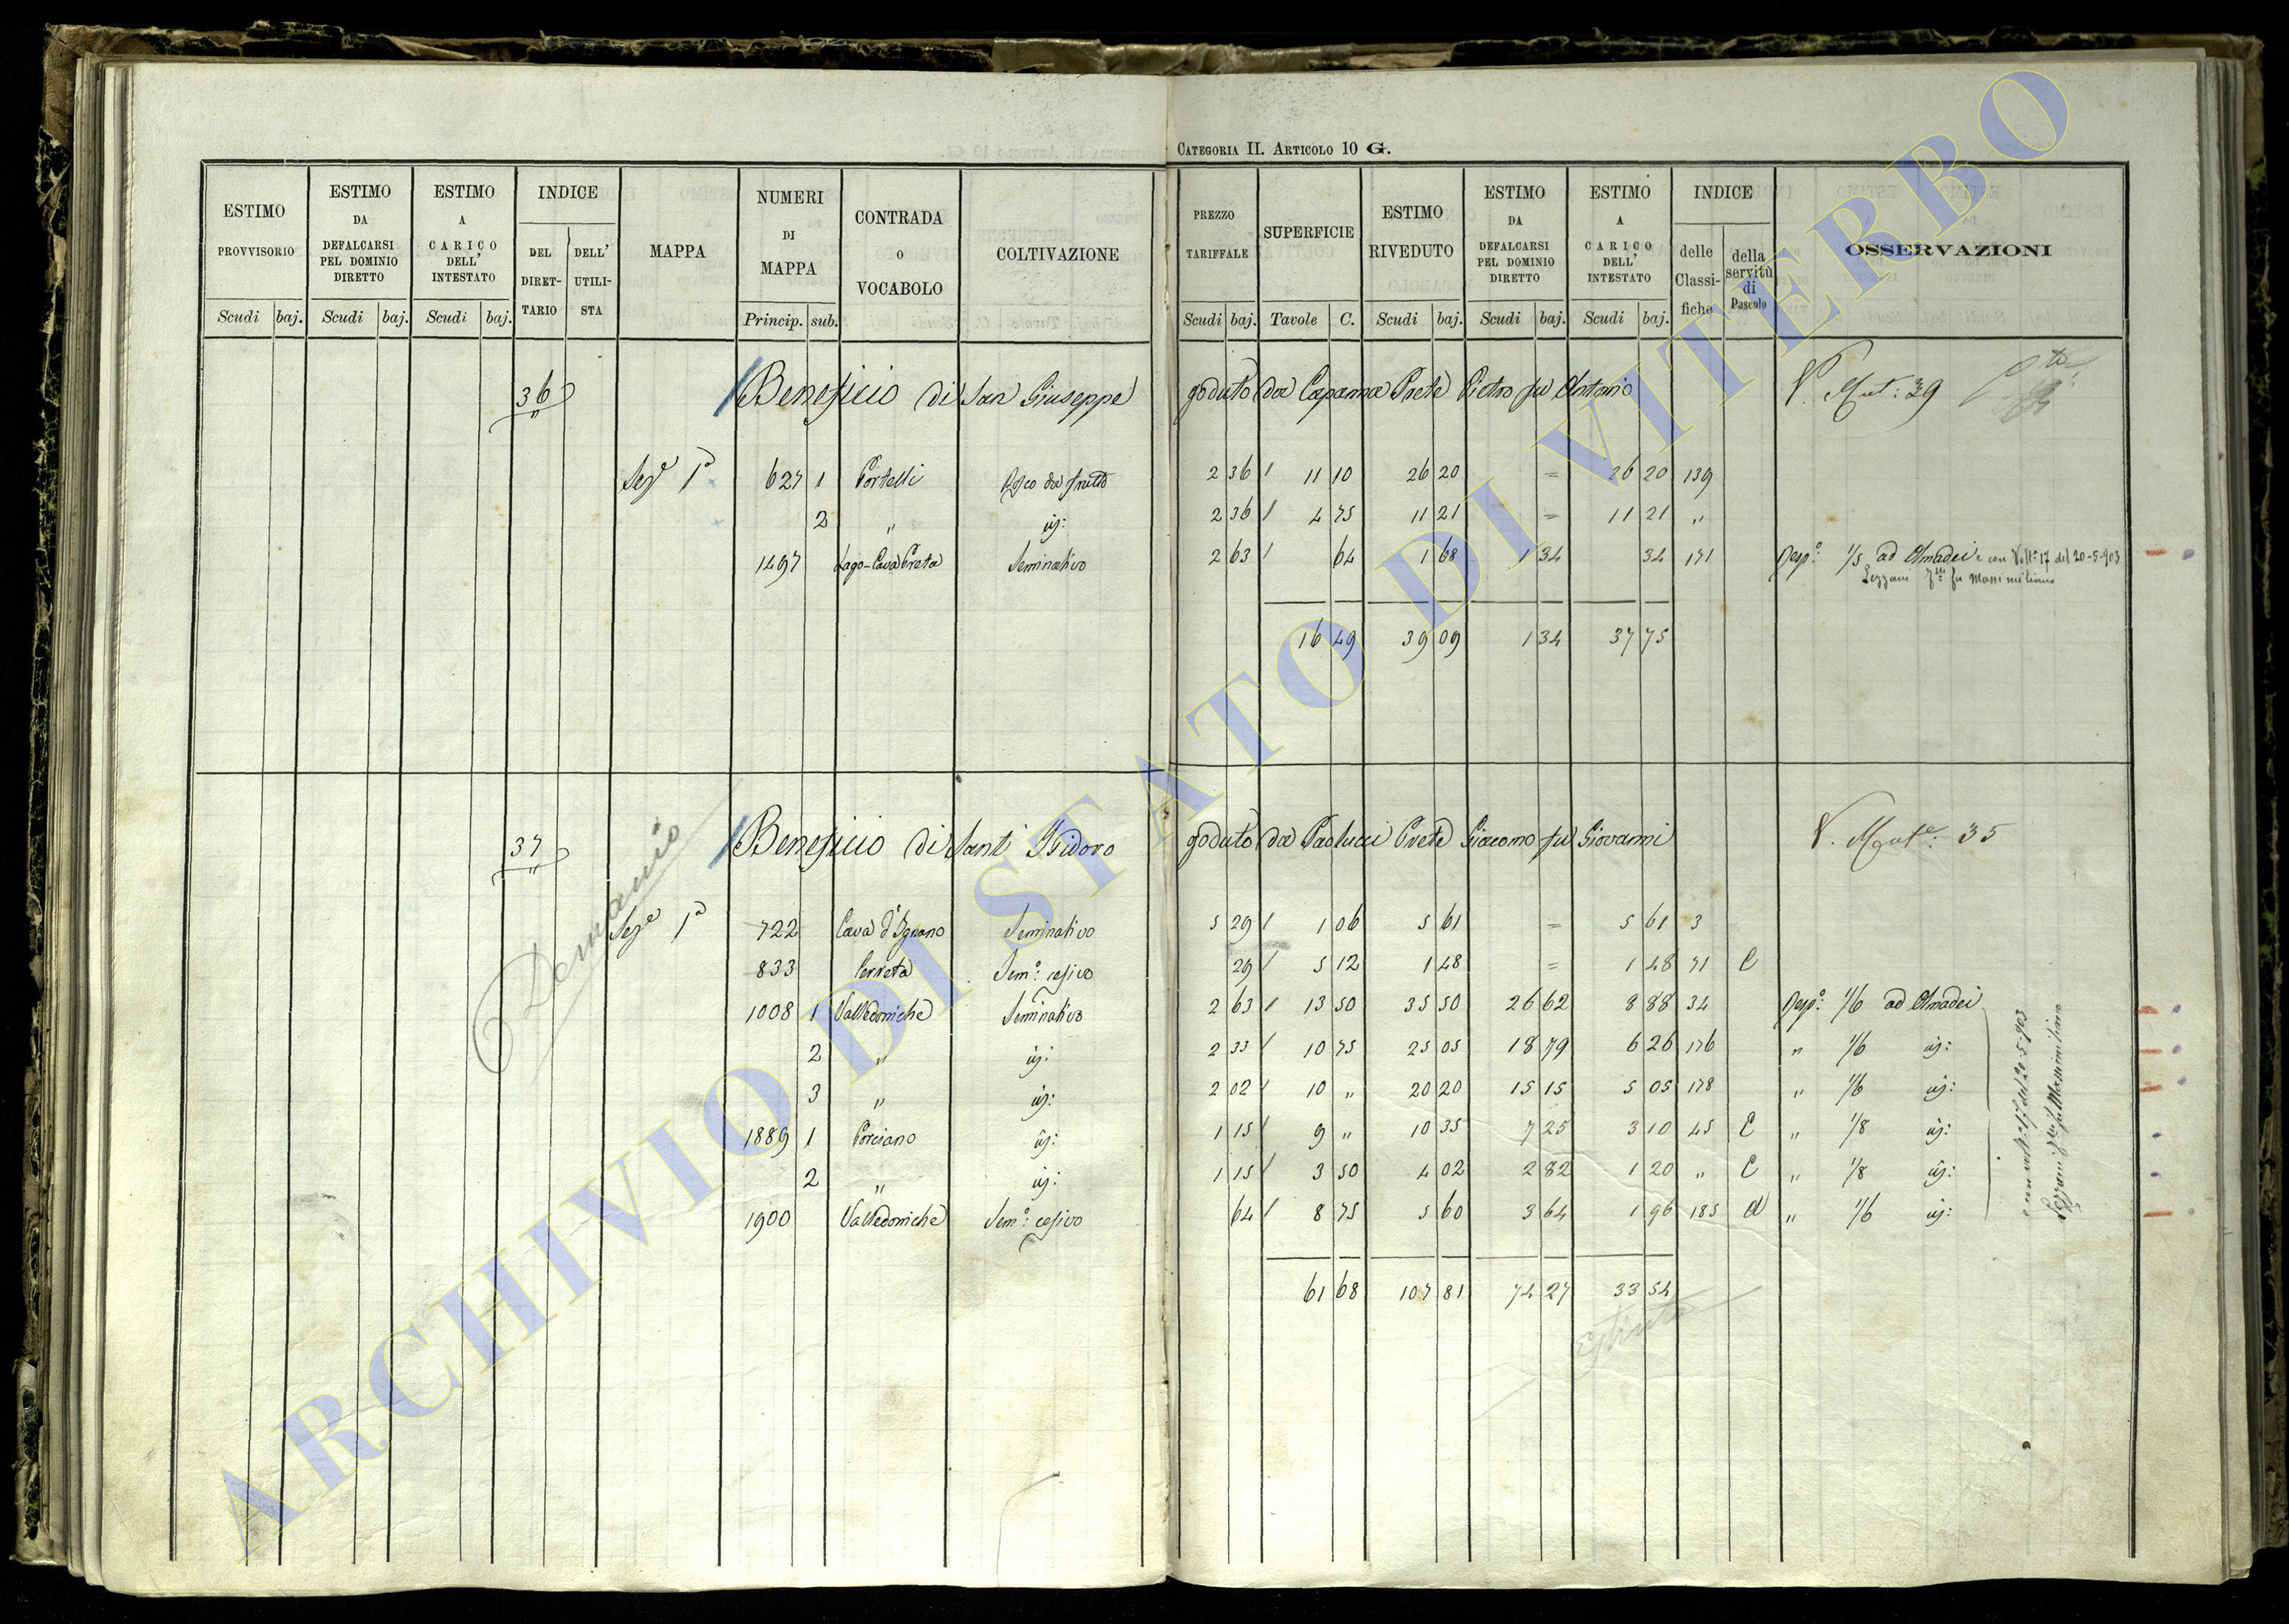 CATEGORIA II. ARTICOLO 10 G.
ESTIMO PROVVISORIO Scudi baj.
ESTIMO DA DEFALCARSI PEL DOMINIO DIRETTO Scudi baj.
ESTIMO A CARICO DELL' INTESTATO Scudi baj.
INDICE DEL DIRET-TARIO DELL' UTILI-STA
MAPPA
NUMERI DI MAPPA Princip. sub.
CONTRADA o VOCABOLO
COLTIVAZIONE
PREZZO TARIFFALE Scudi baj.
SUPERFICIE Tavole C.
ESTIMO RIVEDUTO Scudi baj.
ESTIMO DA DEFALCARSI PEL DOMINIO DIRETTO Scudi baj.
ESTIMO A CARICO DELL' INTESTATO Scudi baj.
INDICE delle Classi-fiche della servitù di Pascolo
OSSERVAZIONI
36 Beneficio di San Giuseppe goduto da Capanna Prete Pietro fu Antonio V. Mut: 39
Sezе 1a 627 1 Portelli da frutto 2 36 11 10 26 20 = 26 20 139
2 " id: 2 36 4 75 11 21 = 11 21 "
1497 Lago-Cava Creta Seminativo 2 63 64 1 68 1 34 34 171 Resp: 1/5 ad Amadei e con Volt. 17 del 20-5-903
Lezzani fu Massimiliano
16 49 39 09 1 34 37 75
37 Beneficio di Sant' Isidoro goduto da Paolucci Prete Giacomo fu Giovanni V. Mut: 35
Demanio
Seze 1a 722 Cava d'Ignano Seminativo 5 29 1 06 5 61 = 5 61 3
833 Cerreta Sem: cesivo 29 5 12 1 48 = 1 48 71 C
1008 1 Valledoniche Seminativo 2 63 13 50 35 50 26 62 8 88 34 Resp: 1/6 ad Amadei
2 " id: 2 33 10 75 25 05 18 79 6 26 176 " 1/6 id:
3 " id: 2 02 10 " 20 20 15 15 5 05 178 " 1/6 id:
1889 1 Porciano id: 1 15 9 " 10 35 7 25 3 10 45 C " 1/8 id:
2 " id: 1 15 3 50 4 02 2 82 1 20 " C " 1/8 id:
1900 Valledoniche Sem: cesivo 64 8 75 5 60 3 64 1 96 185 d " 1/6 id:
e con volt. 17 del 20-5-903
Lezzani fu Massimiliano
61 68 107 81 74 27 33 54
estinta
ARCHIVIO DI STATO DI VITERBO